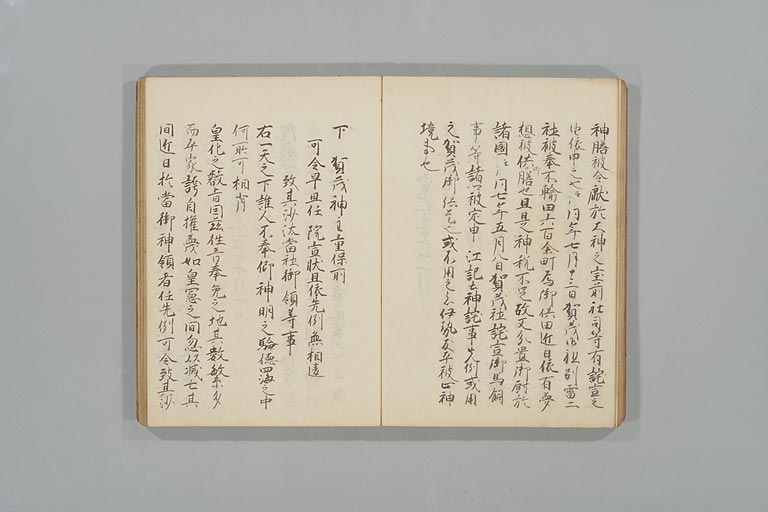 神膳被令獻於大神之宝前社司等有託宣之
由依申之也同年七月十三日賀茂御祖別雷二
社被奉不輸田六百余町為御供田近日依有夢
想被供膳也且是神税不足故又分置御厨於
諸國同七年五月八日賀茂社託宣御馬飼
事等諸被定申江記云神託事先例或用
之賀茂御供是也或不用之伊勢被止神
境事也
下 賀茂神主重保所
可令早且任院宣状且依先例無相違
致其沙汰當社御領等事
右一天之下誰人不奉仰神明之験徳四海之中
何所可相背
皇化之教旨因茲往古奉免之地其数繁多
而平家誇自權蔑如皇憲之間忽以滅亡其
間近日於當御神領者任先例可令致其沙